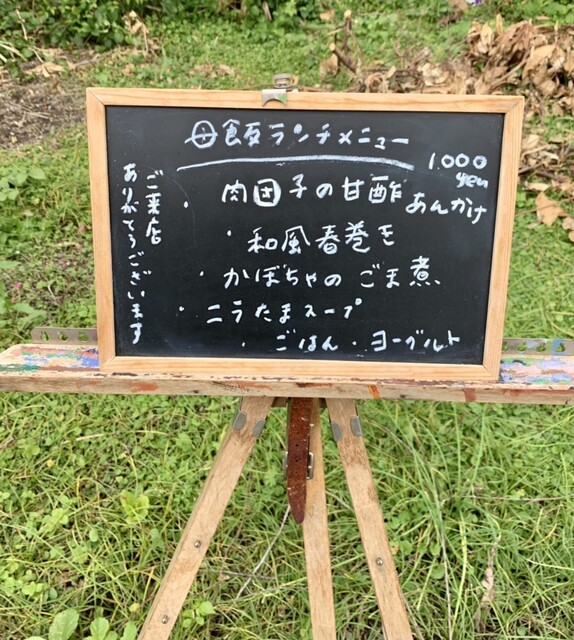 ㊉飯ランチメニュー
1.000
yen
・肉団子の甘酢あんかけ
・和風春巻き
・かぼちゃのごま煮
・ニラたまスープ
・ごはん・ヨーグルト
ご来店
ありがとうございます